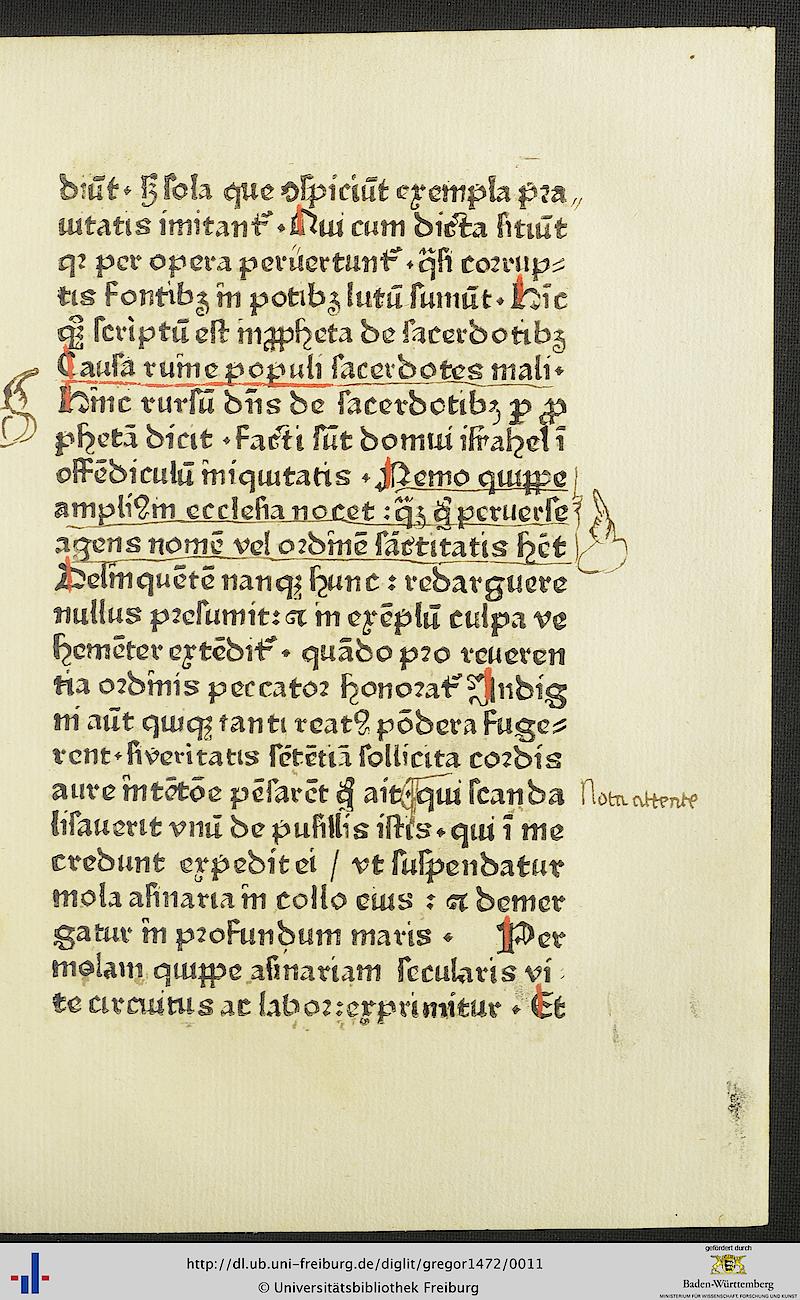 diūt · sꝫ sola que ꝯspiciūt exempla pra„
uitatis imitantᷣ · Qui cum dicta sitiūt
qꝛ per opera peruertuntᷣ · qᷓsi corrup⸗
tis fontibꝫ in potibꝫ lutū sumūt · Hīc
qꝫ scriptū est in ꝓpheta de sacerdotibꝫ
Causa ruine populi sacerdotes mali ·
Hinc rursū dn̄s de sacerdotibꝫ ꝑ ꝓ
phetā dicit · Facti sūt domui israhel ī
offēdiculū iniquitatis · Nemo quippe
ampliꝰ in ecclesia nocet : qᷓꝫ qͥ peruerse
agens nomē vel ordinē sāctitatis hēt
Delinquētē nanqꝫ hunc : redarguere
nullus presumit : ⁊ in exēplū culpa ve
hemēter extēditᷣ · quādo pro reueren
tia ordinis peccator honoratᷣ Indig
ni aūt quiqꝫ tanti reatꝰ pōdera fuge⸗
rent · si veritatis sētētiā sollicita cordis
aure intētōe pēsarēt qͥ ait · qui scanda
lisauerit vnū de pusillis istis · qui ī me
credunt expedit ei / vt suspendatur
mola asinaria in collo eius : ⁊ demer
gatur in profundum maris · Per
molam quippe asinariam secularis vi
te circuitus ac labor : exprimitur · Et
Nota attente
http://dl.ub.uni-freiburg.de/diglit/gregor1472/0011
© Universitätsbibliothek Freiburg
gefördert durch
Baden-Württemberg
MINISTERIUM FÜR WISSENSCHAFT, FORSCHUNG UND KUNST